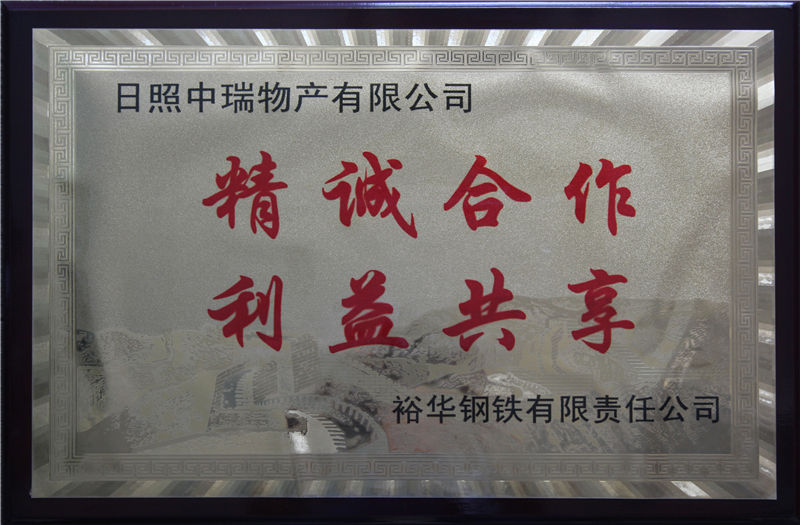 日照中瑞物产有限公司
精诚合作
利益共享
裕华钢铁有限责任公司